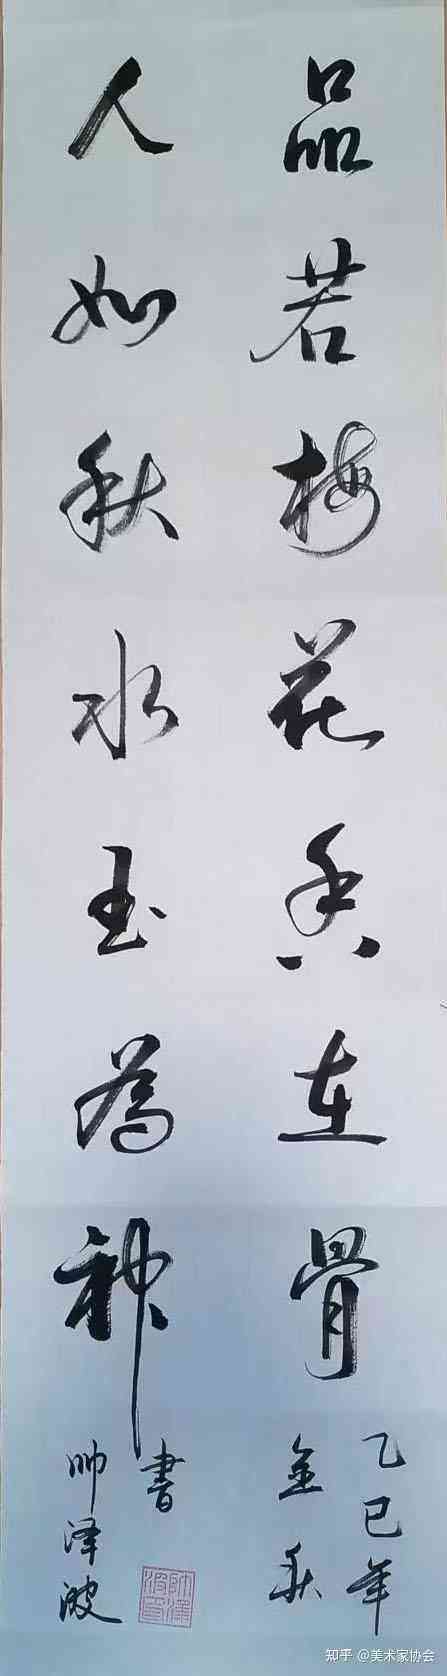 品若梅花香在骨
人如秋水玉為神
乙巳年
金秋
帅泽波
書
帅泽波印
知乎 @美术家协会